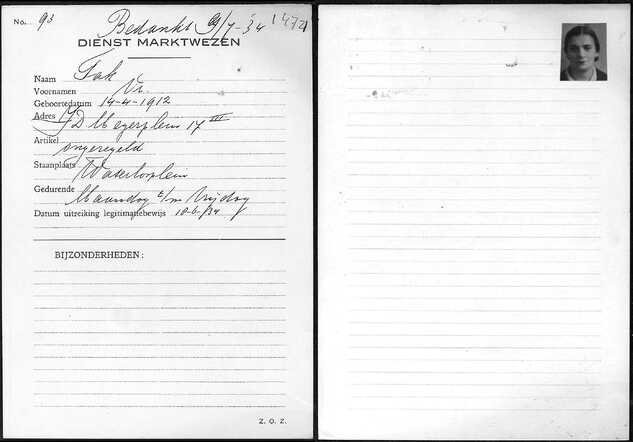 No. 93 Bedankt 9/7-34 1472
DIENST MARKTWEZEN
Naam Fak
Voornamen Vr.
Geboortedatum 14-4-1912
Adres J D Meyerplein 17 III
Artikel ongeregeld
Staanplaats Waterlooplein
Gedurende Maandag t/m Vrijdag
Datum uitreiking legitimatiebewijs 18-6-'34
BIJZONDERHEDEN:
Z. O. Z.